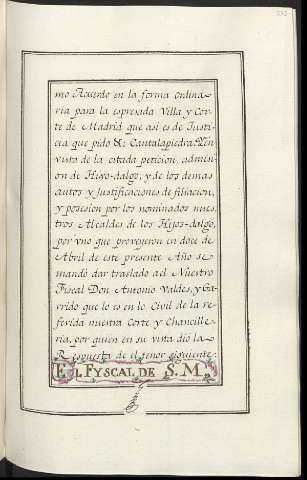 mo Acuerdo en la forma ordina-
ria para la espresada Villa y Cor-
te de Madrid que asi es de Justi-
cia que pido &c: Cantalapiedra. En
visto de la citada peticion, admisi-
on de Hijo-dalgo, y de los demas
autos y Justificaciones de filiacion,
y posesion por los nominados nues-
tros Alcaldes de los Hijos-dalgo,
por uno que proveyeron en doce de
Abril de este presente Año se
mandó dar traslado a el Nuestro
Fiscal Don Antonio Valdes, y Ga-
rrido que lo es en lo Civil de la re-
ferida nuestra Corte y Chancille-
ria, por quien en su vista dió la
Respuesta de el tenor siguiente:
EL FYSCAL DE S. M.